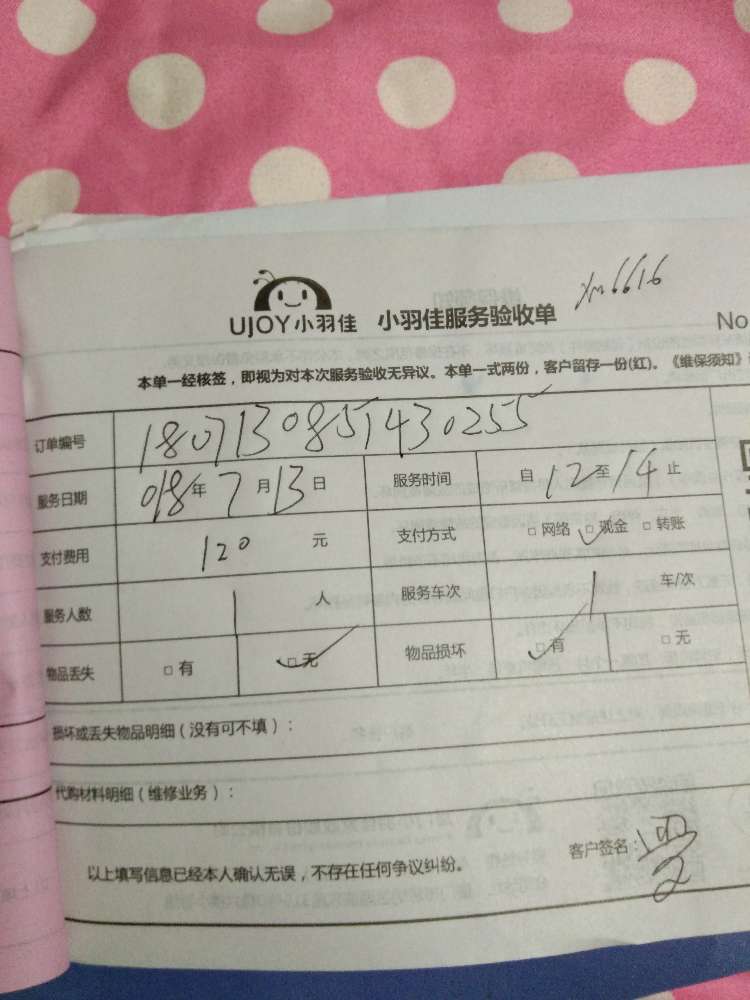 xm6616
UJOY小羽佳 小羽佳服务验收单
No
本单一经核签，即视为对本次服务验收无异议。本单一式两份，客户留存一份(红)。《维保须知》
订单编号 1807130851430255
服务日期 018年7月13日 服务时间 自12至14止
支付费用 120元 支付方式 □网络 ☑现金 □转账
服务人数 1人 服务车次 1车/次
物品丢失 □有 ☑无 物品损坏 ☑有 □无
损坏或丢失物品明细（没有可不填）：
代购材料明细（维修业务）：
以上填写信息已经本人确认无误，不存在任何争议纠纷。 客户签名：